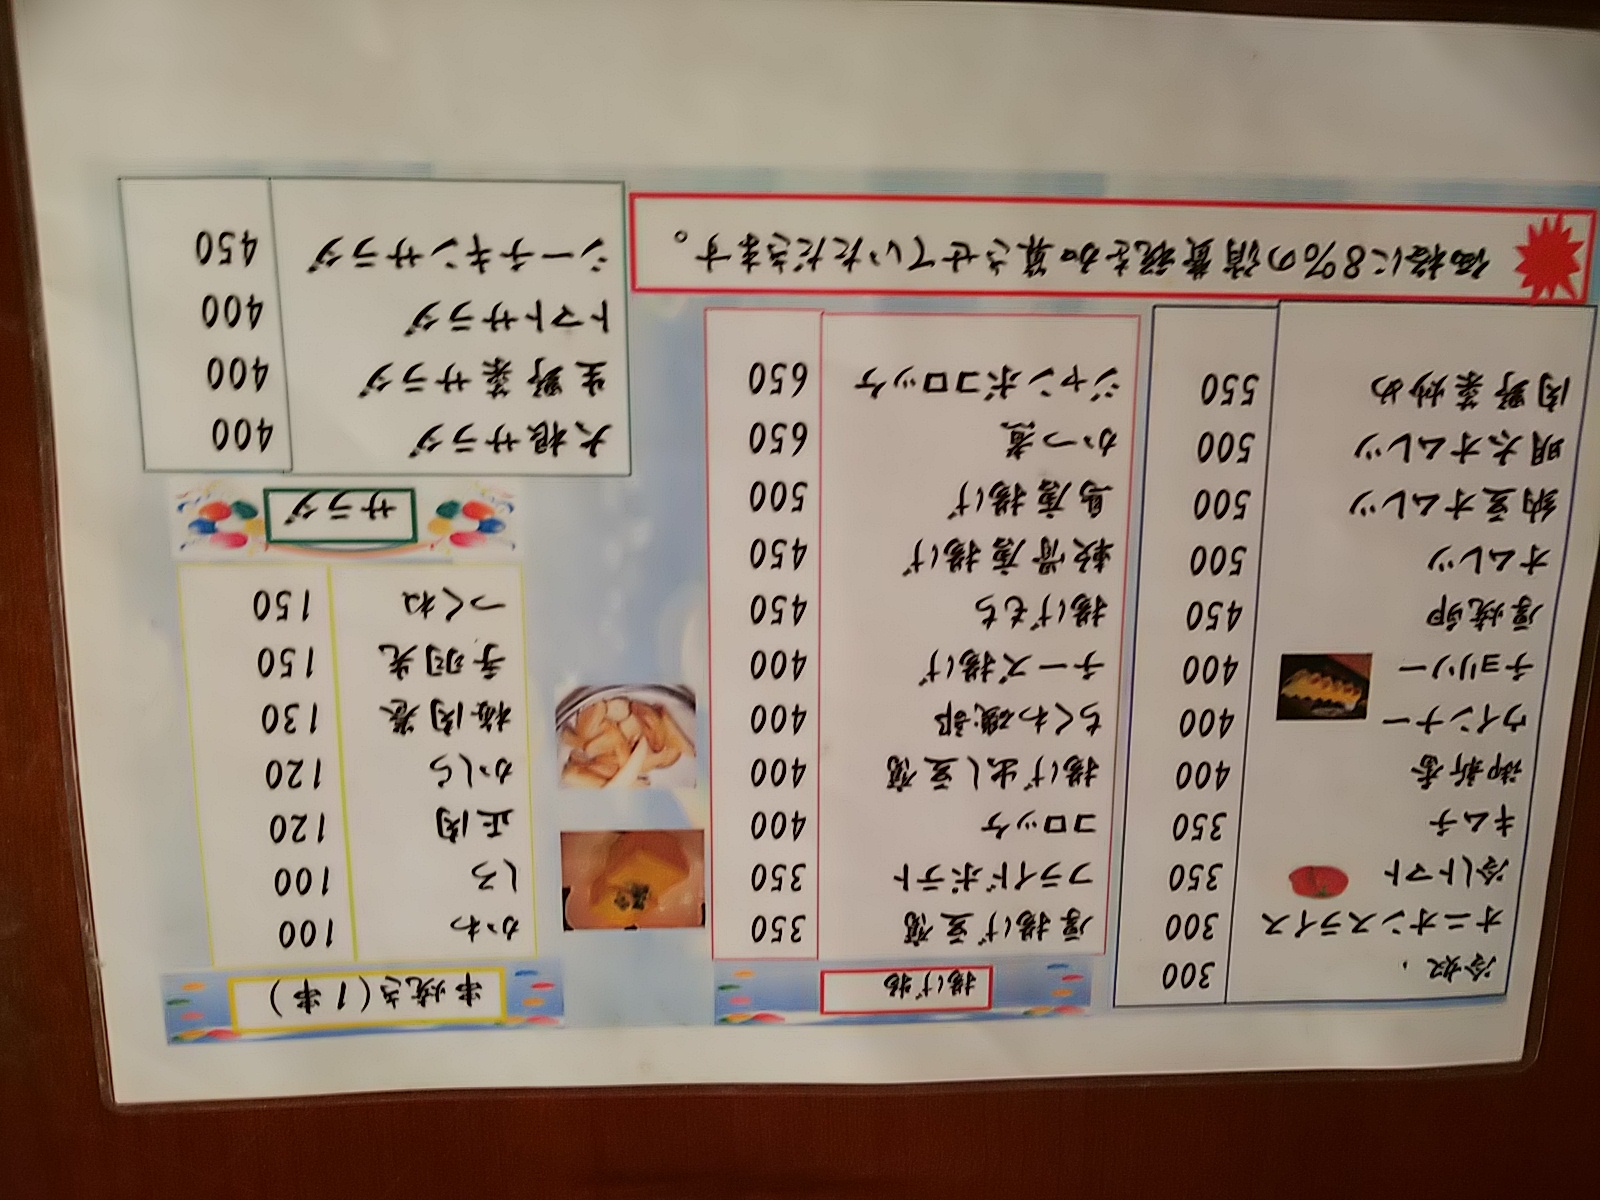 冷奴 300
オニオンスライス 300
冷しトマト 350
キムチ 350
御新香 400
ウインナー 400
チョリソー 400
厚焼卵 450
オムレツ 500
納豆オムレツ 500
明太オムレツ 500
肉野菜炒め 550
揚げ物
厚揚げ豆腐 350
フライドポテト 350
コロッケ 400
揚げ出し豆腐 400
ちくわ磯部 400
チーズ揚げ 400
揚げもち 450
軟骨唐揚げ 450
鳥唐揚げ 500
かつ煮 650
ジャンボコロッケ 650
串焼き(1串)
かわ 100
しろ 100
正肉 120
かしら 120
梅肉巻 130
手羽先 150
つくね 150
サラダ
大根サラダ 400
生野菜サラダ 400
トマトサラダ 400
シーチキンサラダ 450
価格に8%の消費税を加算させていただきます。